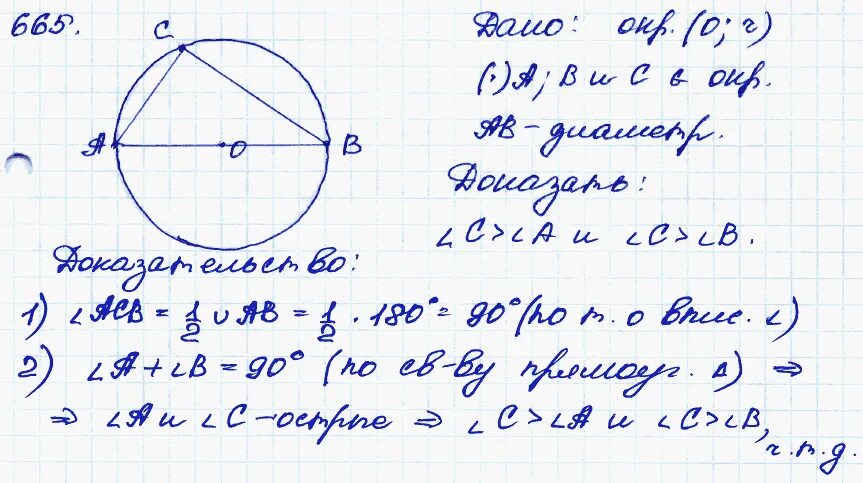 665.
C
A
O
B
Дано: окр. (O; r)
(·)A; B и C ∈ окр.
AB – диаметр.
Доказать:
∠C>∠A и ∠C>∠B.
Доказательство:
1) ∠ACB = 1/2 ∪AB = 1/2 · 180° = 90° (по т. о впис. ∠)
2) ∠A+∠B = 90° (по св-ву прямоуг. Δ) ⇒
⇒ ∠A и ∠C – острые ⇒ ∠C>∠A и ∠C>∠B,
ч.т.д.